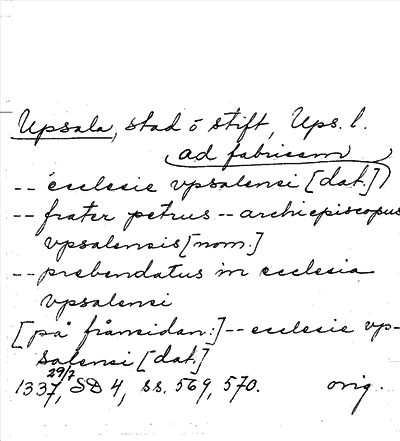 Upsala, stad o stift, Ups. l.
ad fabricam
-- ecclesie vpsalensi [dat.])
-- frater petrus -- archiepiscopus
vpsalensis [nom.]
-- prebendatus in ecclesia
vpsalensi
[på frånsidan:] -- ecclesie vp-
salensi [dat.]
1337 29/7, SD 4, ss. 569, 570. orig.